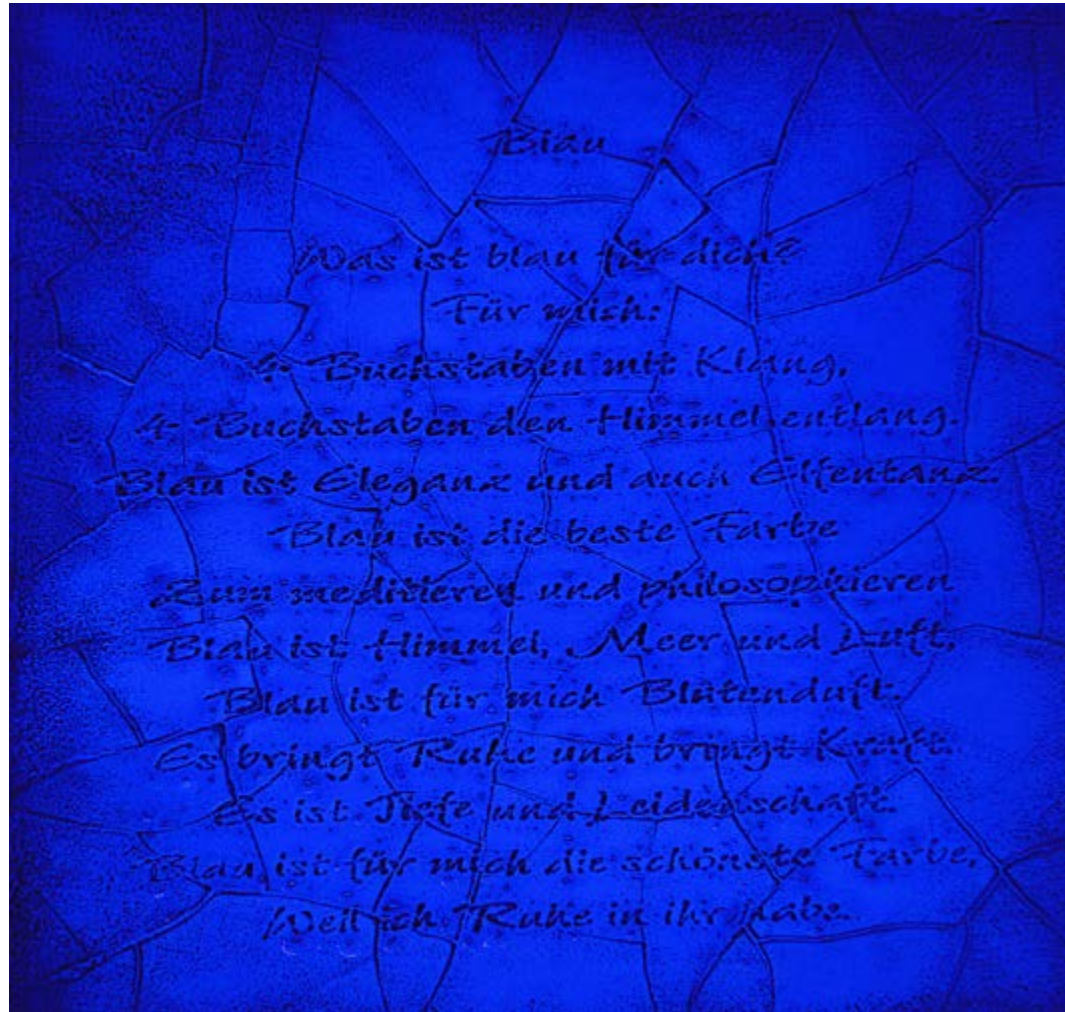 Blau
Was ist blau für dich?
Für mich:
4 Buchstaben mit Klang,
4 Buchstaben den Himmel entlang.
Blau ist Eleganz und auch Elfentanz.
Blau ist die beste Farbe
Zum meditieren und philosophieren
Blau ist Himmel, Meer und Luft,
Blau ist für mich Blütenduft.
Es bringt Ruhe und bringt Kraft.
Es ist Tiefe und Leidenschaft.
Blau ist für mich die schönste Farbe,
Weil ich Ruhe in ihr habe.